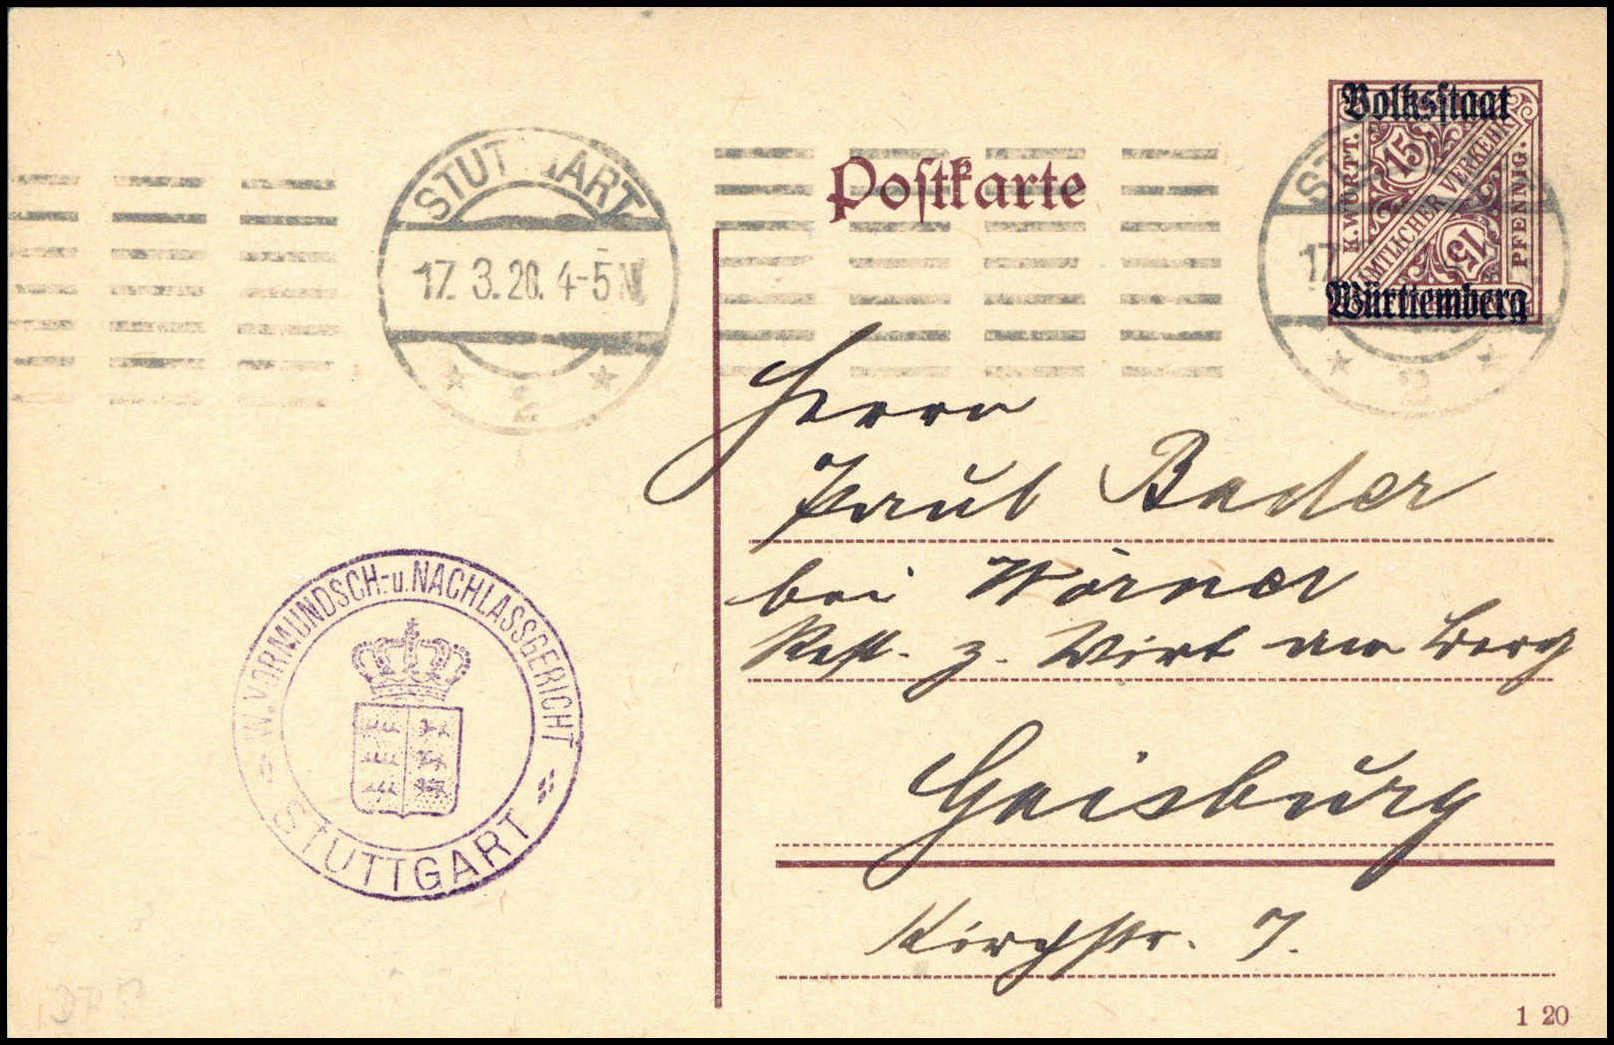 Volksstaat
K. WÜRTT.
15
AMTLICHER VERKEHR
15
PFENNIG.
Württemberg
STUTTGART
17. 3. 20. 4-5 N
* 2 *
Postkarte
ST
17.
* 2 *
Herrn
Paul Bader
bei Wörner
Rest. z. Wirt am Berg
Gaisburg
Kirchstr. 7.
W. VORMUNDSCH.- u. NACHLASSGERICHT
STUTTGART
1 20